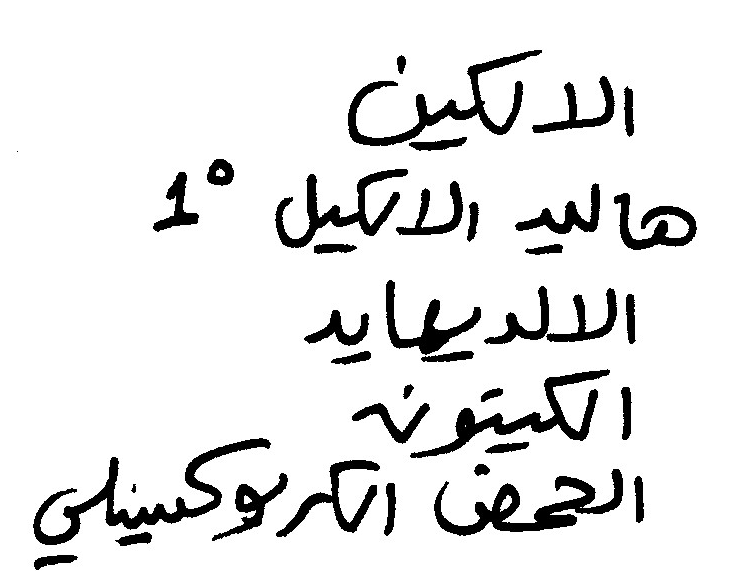 الالكين
هاليد الالكيل 1°
الالديهايد
الكيتون
الحمض الكربوكسيلي